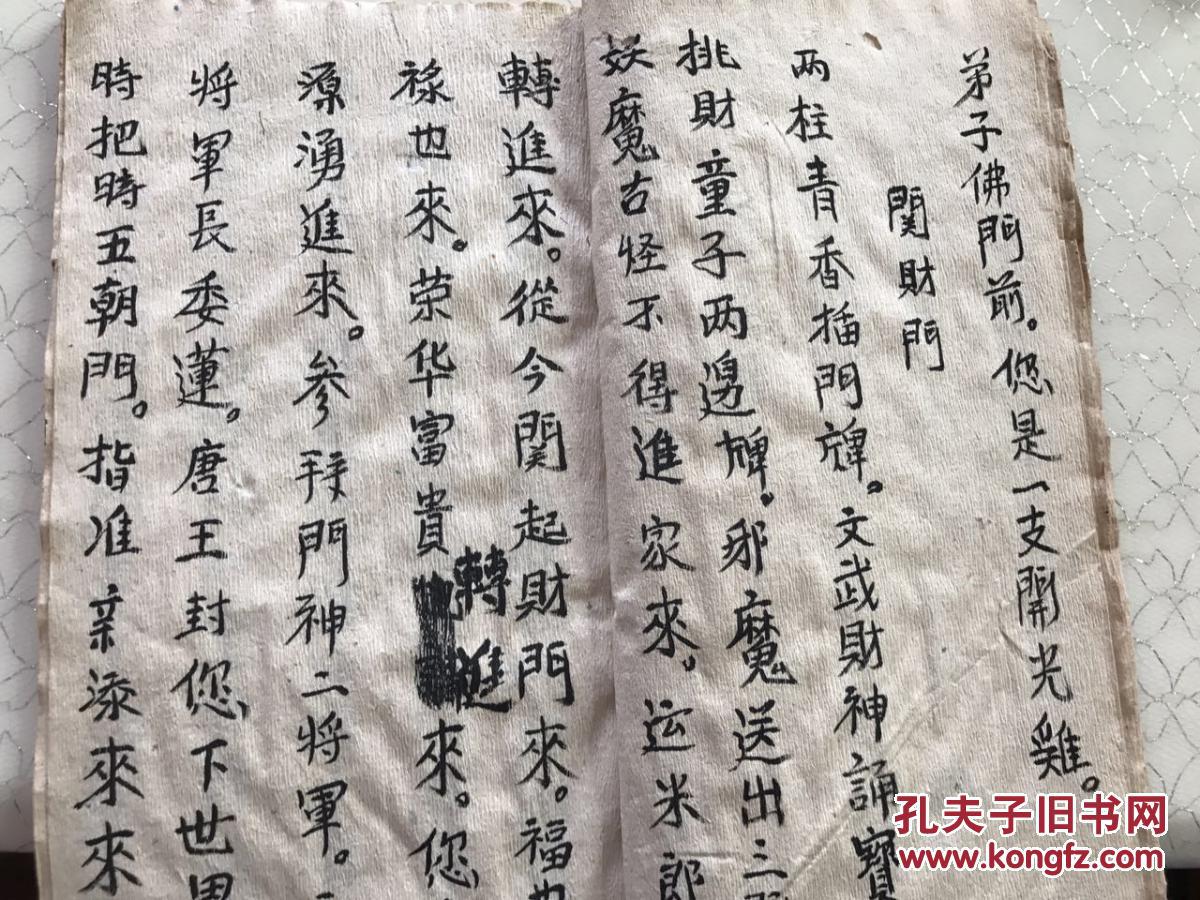 弟子佛門前。您是一支開光雞。
関財門
两柱青香插門牌。文武財神誦寶
挑財童子两邊牌。邪魔送出三
妖魔古怪不得進家來。运米郎
轉進來。從今関起財門來。福也
禄也來。荣华富貴轉進來。您
源湧進來。參拜門神二將軍。
將軍長委蓮。唐王封您下世
時把時五朝門。指准亲添來來
孔夫子旧书网
www.kongfz.com